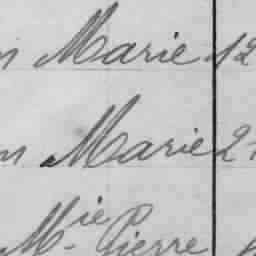 n Marie 12
n Marie 2
Mie Pierre